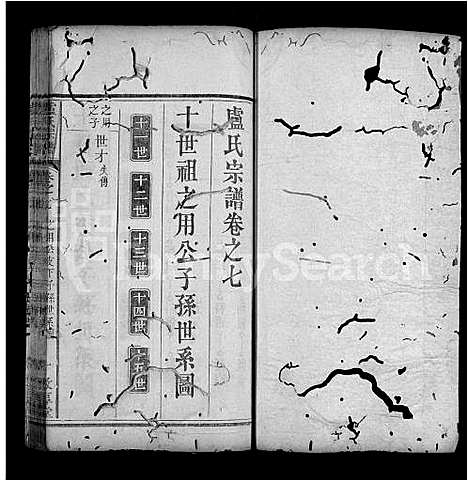 盧氏宗譜卷之七
十世祖之用公子孫世系圖
十一世
十二世
十三世
十四世
十五世
之用
之子
世才失傳
FamilySearch